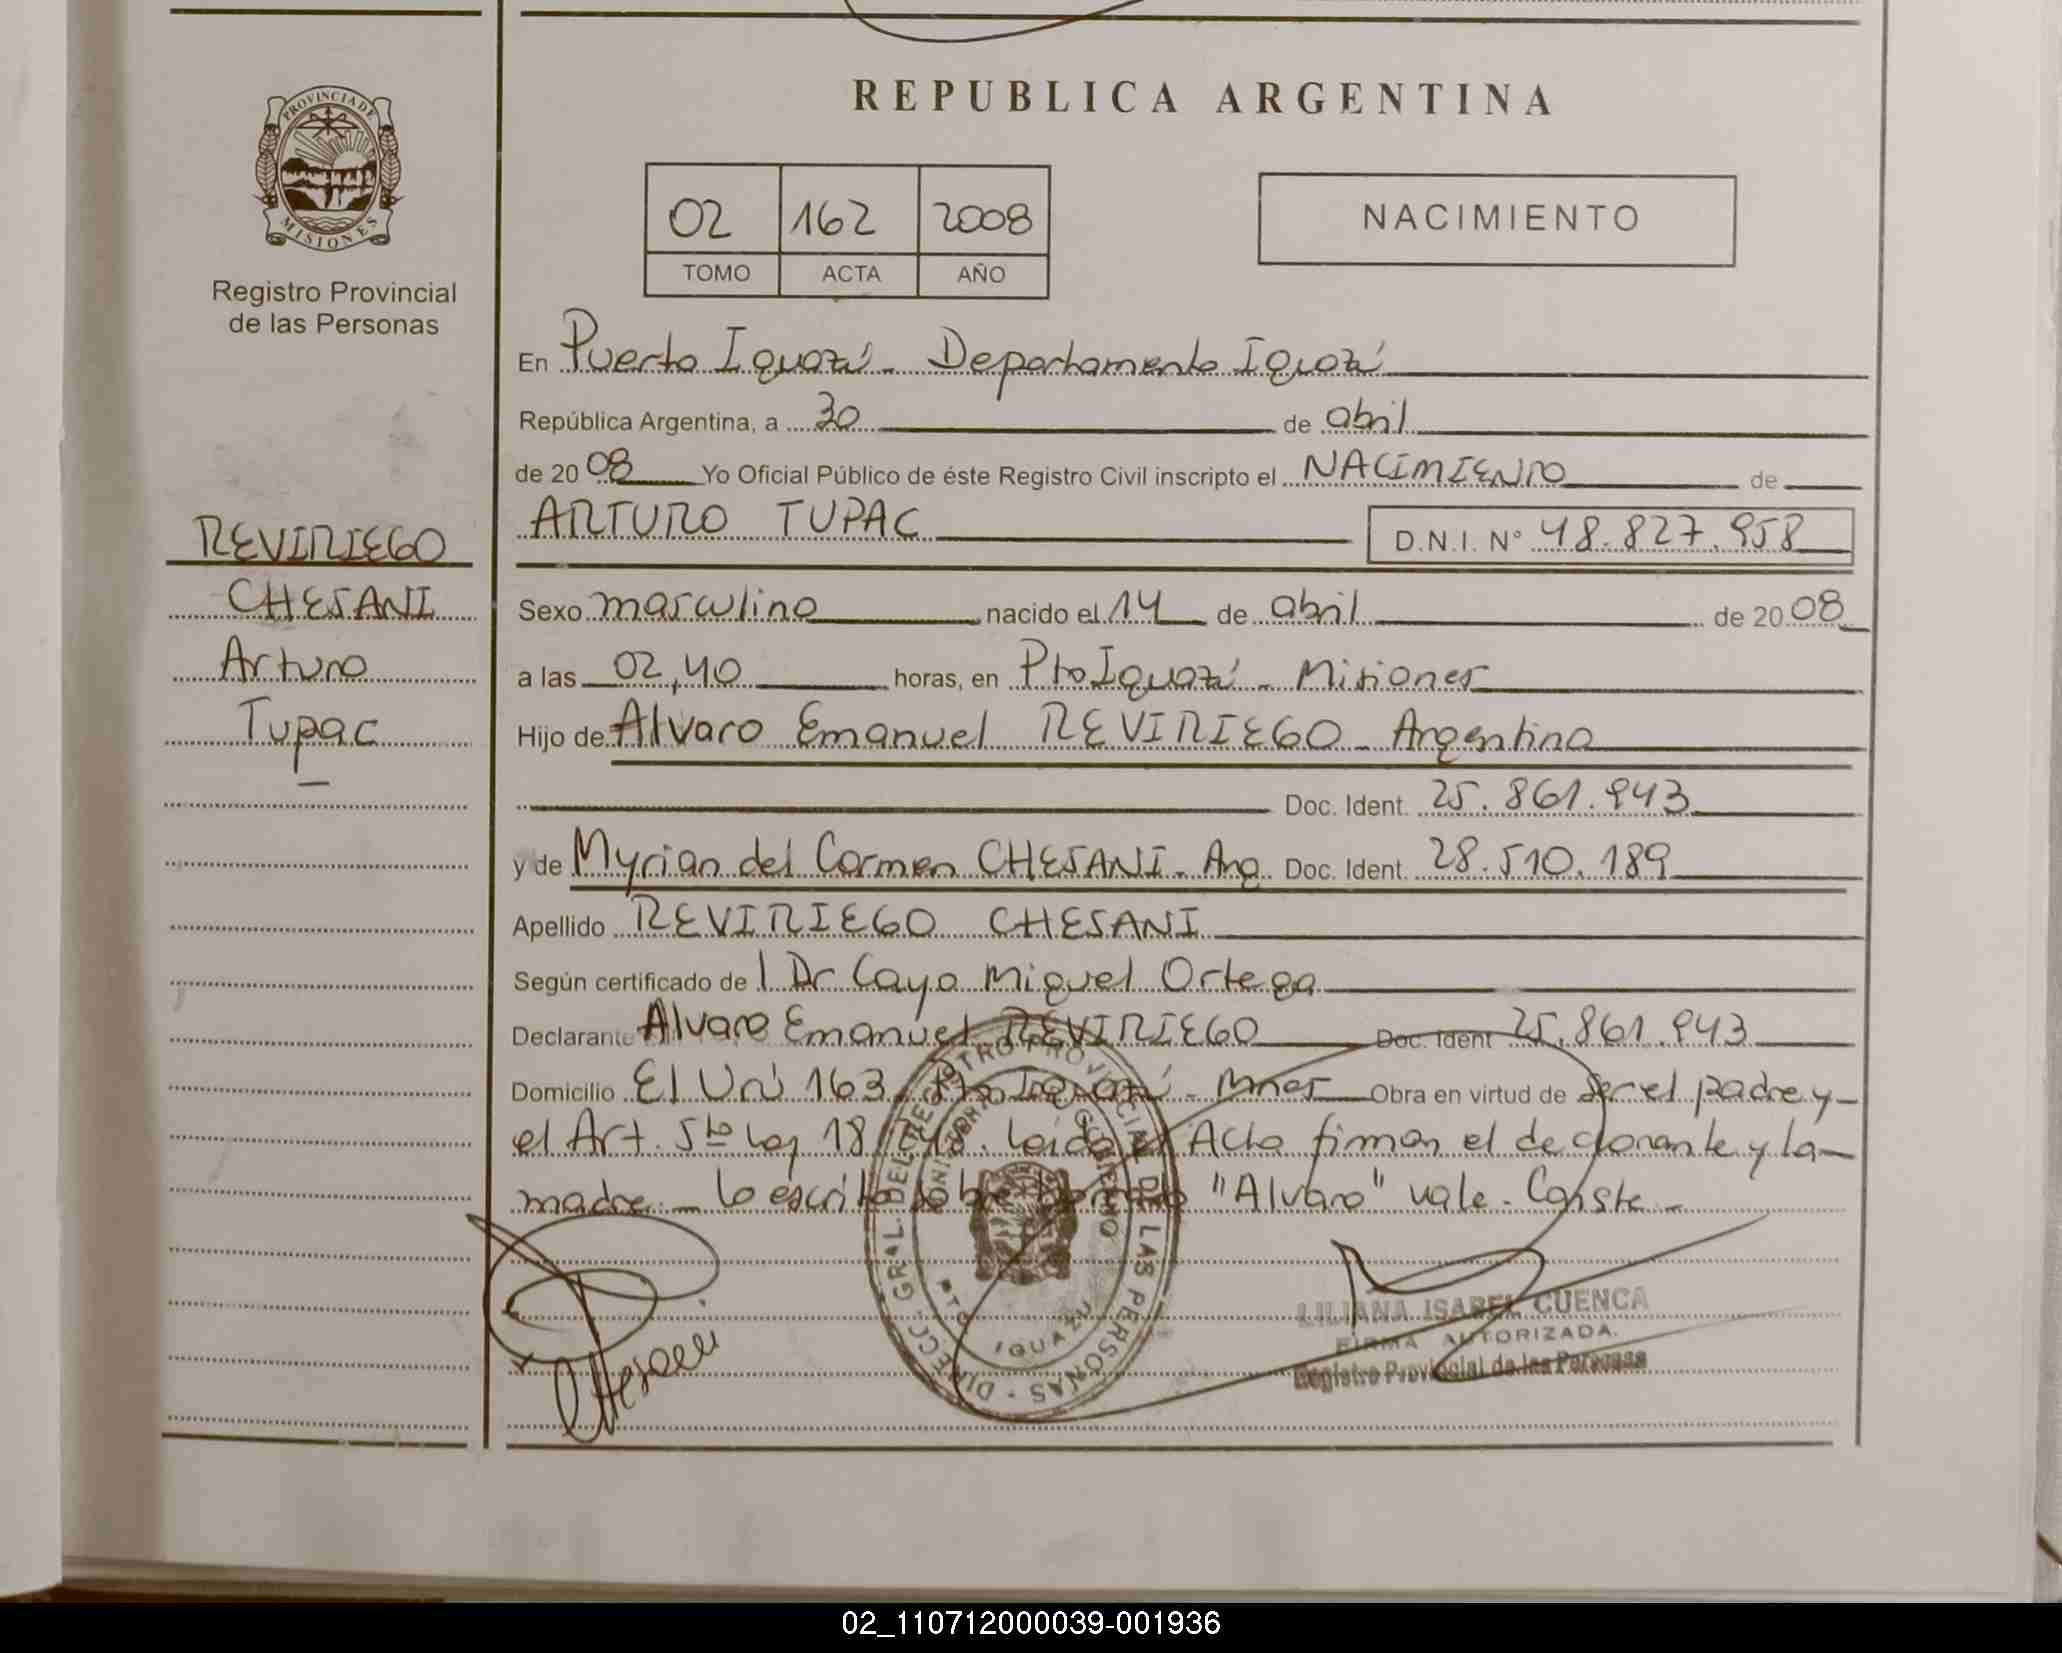 REPUBLICA ARGENTINA
PROVINCIA DE
MISIONES
Registro Provincial
de las Personas
02 162 2008
TOMO ACTA AÑO
NACIMIENTO
En Puerto Iguazú - Departamento Iguazú
República Argentina, a 30 de abril
de 2008 Yo Oficial Público de éste Registro Civil inscripto el NACIMIENTO de
ARTURO TUPAC D.N.I. N° 48.827.958
REVIRIEGO
CHESANI
Arturo
Tupac
Sexo masculino nacido el 14 de abril de 2008
a las 02,40 horas, en Pto Iguazú - Misiones
Hijo de Alvaro Emanuel REVIRIEGO - Argentino
Doc. Ident. 25.861.943
y de Myrian del Carmen CHESANI - Arg Doc. Ident. 28.510.189
Apellido REVIRIEGO CHESANI
Según certificado de l Dr Cayo Miguel Ortega
Declarante Alvaro Emanuel REVIRIEGO Doc. Ident 25.861.943
Domicilio El Urú 163 Pto Iguazú - Mnes Obra en virtud de ser el padre y
el Art. 5to Ley 18 Leida el Acta firman el declarante y la
madre - Lo escrito sobre "Alvaro" vale. Conste -
DIRECC. GRAL. DEL REGISTRO PROVINCIAL DE LAS PERSONAS
PTO IGUAZU
Chesani
LILIANA ISABEL CUENCA
FIRMA AUTORIZADA
Registro Provincial de las Personas
02_110712000039-001936